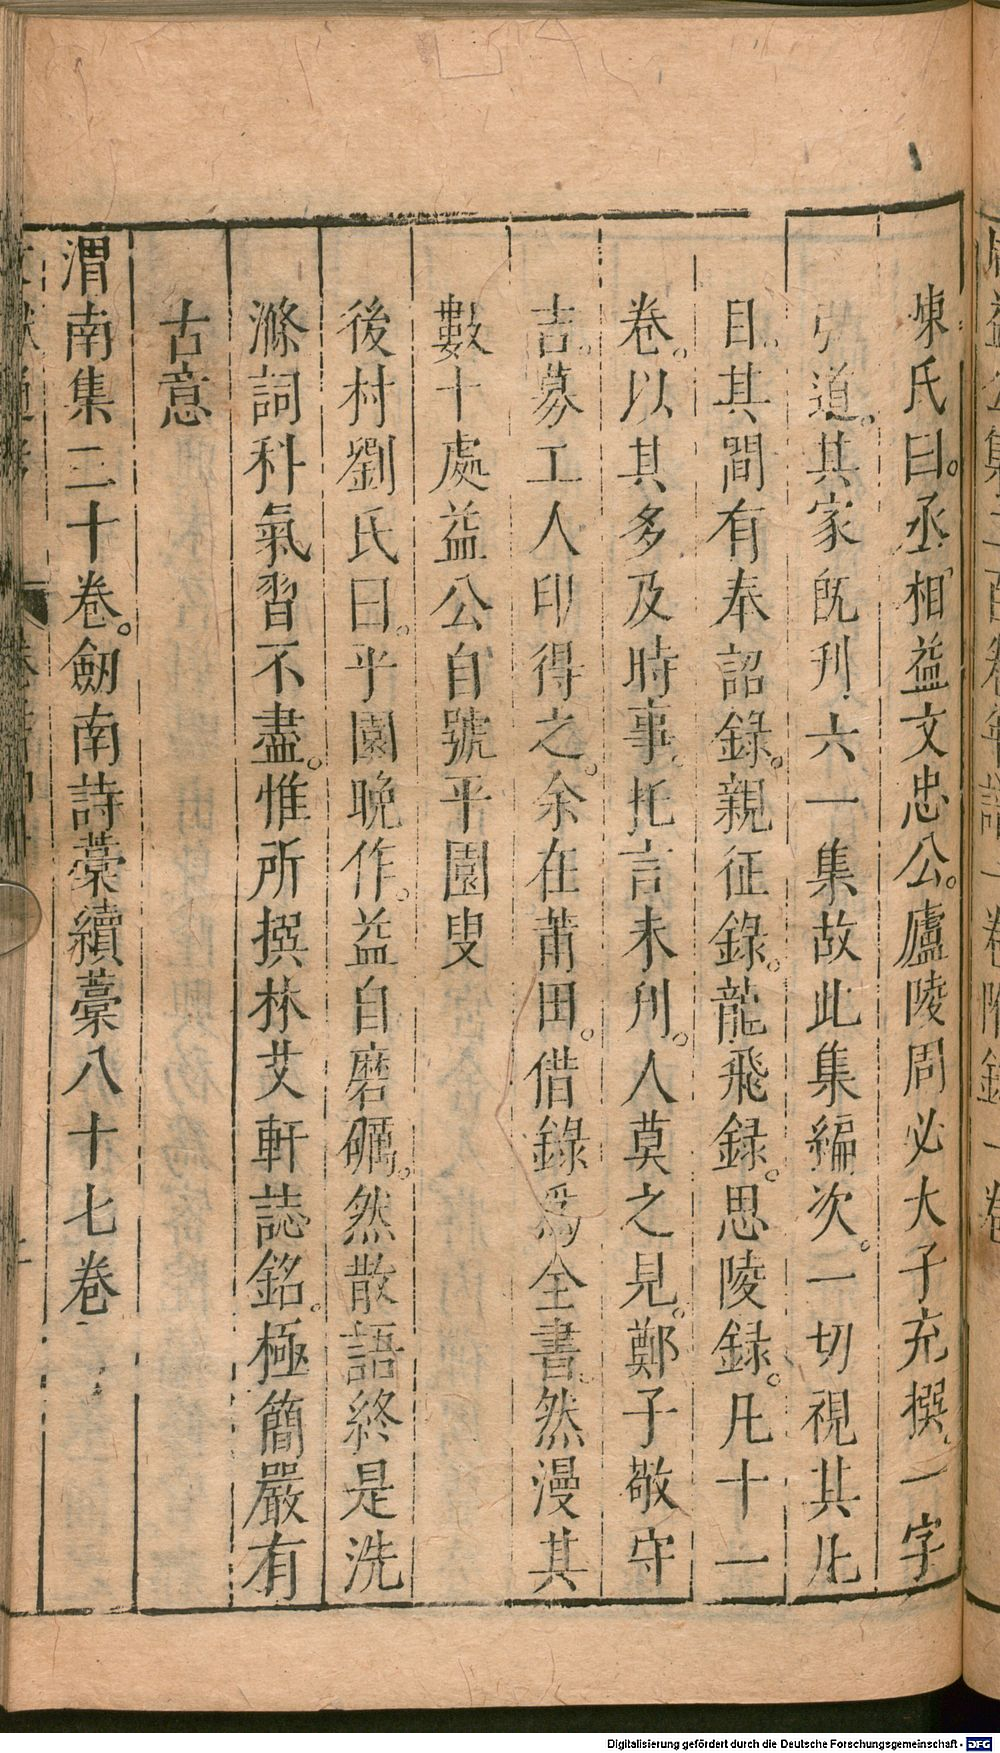 陳氏曰。丞相益文忠公。廬陵周必大子充撰。一字
弘道。其家旣刋六一集故此集編次。一切視其凡
目。其間有奉詔錄。親征錄。龍飛録。思陵録。凡十一
卷。以其多及時事。托言未刋。人莫之見。鄭子敬守
吉。募工人印得之。余在莆田。借錄爲全書。然漫其
數十處益公自號平園叟
後村劉氏曰。平園晚作。益自磨礪。然散語終是洗
滌詞科氣習不盡。惟所撰林艾軒誌銘。極簡嚴有
古意
渭南集三十卷。劒南詩藁續藁八十七卷
Digitalisierung gefördert durch die Deutsche Forschungsgemeinschaft - DFG